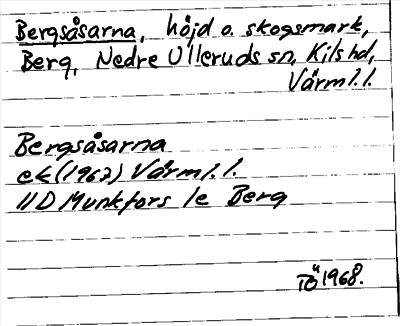 Bergsåsarna, höjd o. skogsmark,
Berg, Nedre Ulleruds sn, Kils hd,
Värml. l.
Bergsåsarna
ek (1967) Värml. l.
11D Munkfors 1e Berg
TÖ 1968.